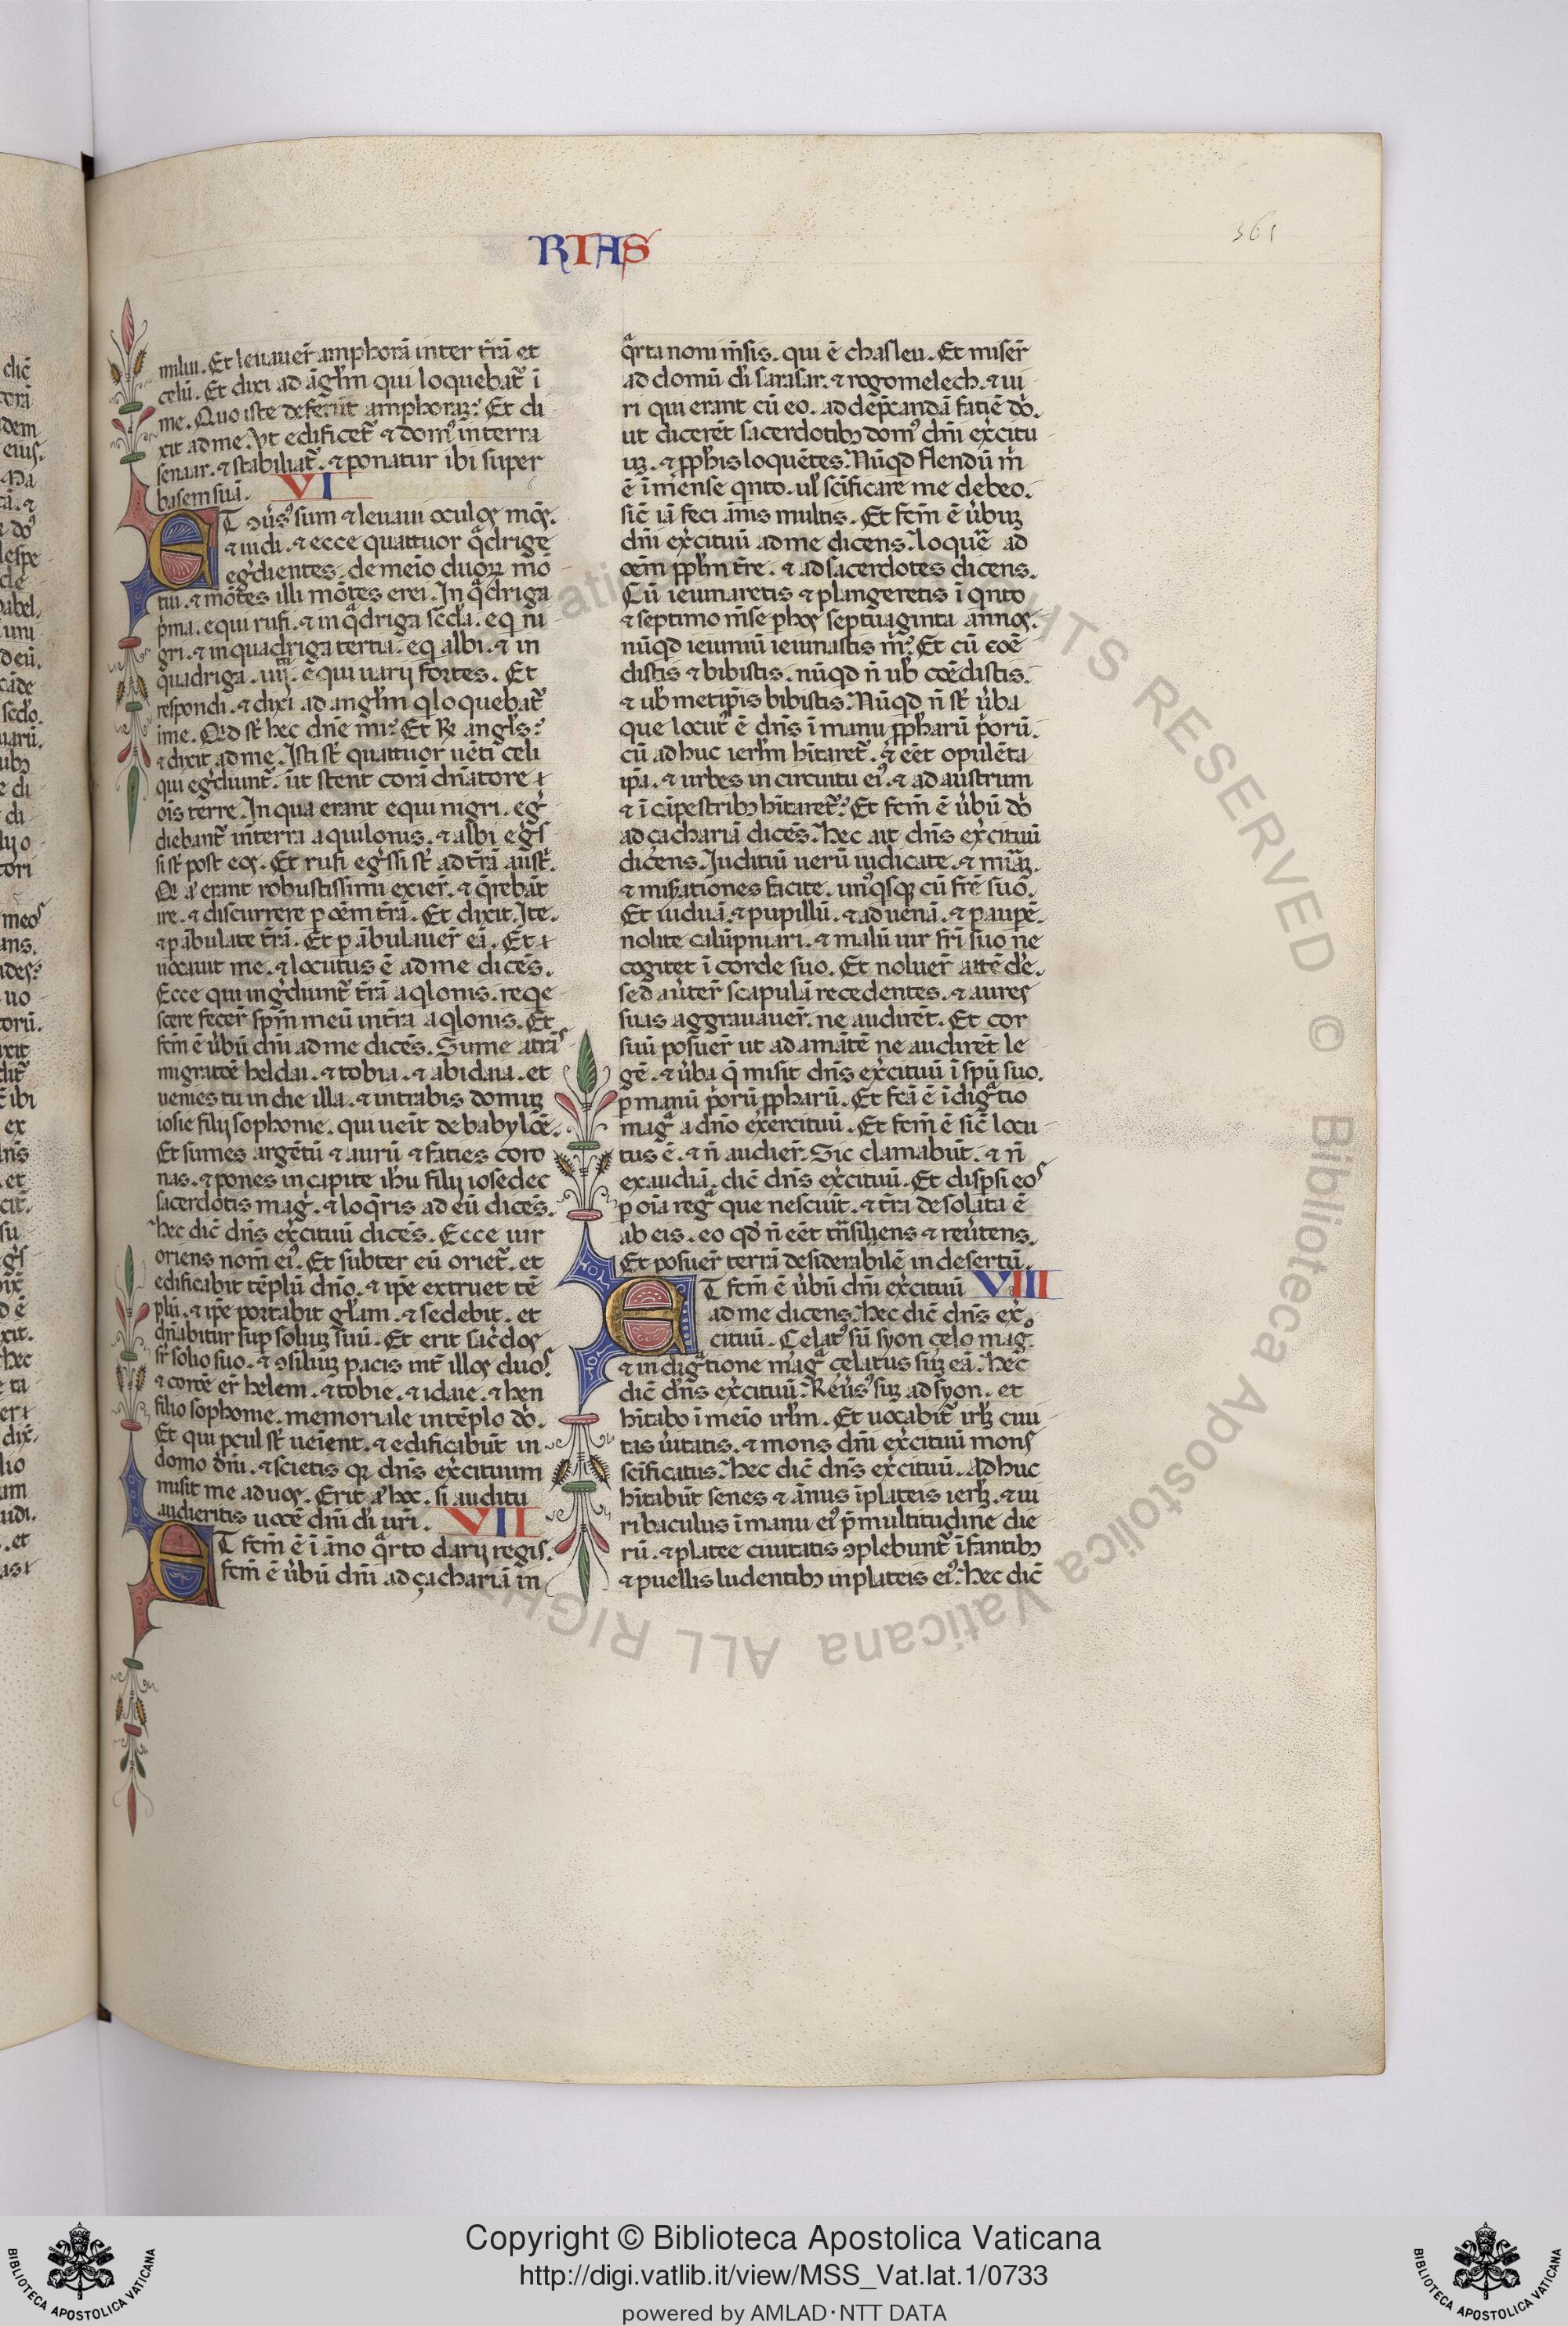 RIAS
361
milui. Et leuauer̄ amphorā inter t̄rā et
celū. Et dixi ad āgl̄m qui loquebat᷑ ī
me. Quo iste deferūt amphoraꝫ? Et di
xit ad me. Vt edificet᷑ ⁊ domꝰ in terra
senaar. ⁊ stabiliat᷑. ⁊ ponatur ibi super
basem suā. VI
ET ↄu̓sꝰ sum ⁊ leuaui oculos meos.
⁊ uidi. ⁊ ecce quattuor qͣdrige
egd̓ientes. de meio duoꝝ mō
tiū. ⁊ mōtes illi mōtes erei. In qͣdriga
p̓ma. equi rufi. ⁊ in qͣdriga sc̄da. eq̓ ni
gri. ⁊ in quadriga tertia. eq̓ albi. ⁊ in
quadriga. iiij. equi uarij fortes. Et
respondi. ⁊ dixi ad angl̄m q̓ loquebat᷑
i me. Qͥd st̄ hec dn̄e mi? Et ℞ angl̄s:
⁊ dixit ad me. Isti st̄ quattuor uēti celi
qui egd̓iunt᷑. ut stent corā dn̄atore
oīs terre. In qua erant equi nigri. eg̓
diebant᷑ in terra aquilonis. ⁊ albi eg̓s
si st̄ post eos. Et rufi eg̓ssi st̄ ad t̄rā aust̄.
Qͥ aͧ erant robustissimi exier̄. ⁊ q̄rebāt
ire. ⁊ discurrere p oēm t̄rā. Et dixit. Ite.
⁊ p ābulate t̄rā. Et p ābulauer̄ eā. Et
uocauit me. ⁊ locutus ē ad me dicēs.
Ecce qui ingd̓iunt᷑ t̄rā aq̓lonis. reqͥe
scere fecer̄ sp̄m meū in t̄ra aq̓lonis. Et
fcm̄ ē u̓bū dn̄i ad me dicēs. Sume a trās
migratōe heldai. ⁊ tobia. ⁊ abidaia. et
uenies tu in die illa. ⁊ intrabis domuꝫ
iosie filij sophonie. qui ueīt de babylōe.
Et sumes argētū ⁊ aurū ⁊ faties coro
nas. ⁊ pones in capite ih̄u filij iosedec
sacerdotis mag̓. ⁊ loq̄ris ad eū dicēs.
Hec dic̄ dn̄s ex̓cituū dicēs. Ecce uir
oriens nom̄ eiꝰ. Et subter eū oriet᷑. et
edificabit tēplū dn̄o. ⁊ ip̄e extruet tē
plū. ⁊ ip̄e portabit gl̄am. ⁊ sedebit. et
dn̄abitur sup̱ soliuꝫ suū. Et erit sac̓dos
sr̄ solio suo. ⁊ ↄsiliuꝫ pacis int̄ illos duos.
⁊ corōe er̄ helem. ⁊ tobie. ⁊ idaie. ⁊ hen
filio sophonie. memoriale in tēplo do̓.
Et qui p̱cul st̄ ueīent. ⁊ edificabūt in
domo dn̄i. ⁊ scietis qꝛ dn̄s ex̓cituum
misit me ad uos. Erit aͧ hoc. si auditu
audieritis uocē dn̄i di̓ uri̓. VII
ET fcm̄ ē ī āno qͣrto darij regis.
fcm̄ ē u̓bū dn̄i ad çachariā in
qͣrta noni m̄sis. qui ē chasleu. Et miser̄
ad domū di̓ sarasar. ⁊ rogomelech. ⁊ ui
ri qui erant cū eo. ad dep̄candā fatiē do̓.
ut dicerēt sacerdotibꝫ domꝰ dn̄i ex̓citu
uꝫ. ⁊ pp̄his loquētes. Nūqd flendū m̓
ē ī mense qͥnto. ul̓ sc̄ificare me debeo.
sic̄ iā feci ānis multis. Et fcm̄ ē u̓buꝫ
dn̄i ex̓cituū ad me dicens. loquē ad
oēm pp̄lm t̄re. ⁊ ad sacerdotes dicens.
Cū ieiunaretis ⁊ plangeretis ī qͥnto
⁊ septimo m̄se p̱ hos septuaginta annos.
nūqd ieiuniū ieiunastis m̓? Et cū coē
distis ⁊ bibistis. nūqd n̄ ub̓ coēdistis.
⁊ ub̓ metip̄is bibistis. Nūqd n̄ st̄ u̓ba
que locutꝰ ē dn̄s ī manu pp̄harū p̓orū.
cū ad huc ierl̄m h̄itaret᷑. ⁊ eēt opulēta
ip̄a. ⁊ urbes in circuitu eiꝰ. ⁊ ad austrum
⁊ ī cāpestribꝫ h̄itaret᷑? Et fcm̄ ē u̓bū do̓
ad çachariā dicēs. Hec ait dn̄s ex̓cituū
dicens. Iuditiū uerū iudicate. ⁊ miāꝫ.
⁊ misationes facite. unꝰqͥsqꝫ cū fr̄e suo.
Et uiduā. ⁊ pupillū. ⁊ aduenā. ⁊ paupē.
nolite calūpniari. ⁊ malū uir fr̄i suo ne
cogitet ī corde suo. Et noluer̄ attēde̓.
sed au̓ter̄ scapulā recedentes. ⁊ aures
suas aggrauauer̄. ne audirēt. Et cor
suū posuer̄ ut adamātē ne audirēt le
gē. ⁊ u̓ba q̄ misit dn̄s ex̓cituū ī sp̄u suo.
p̱ manū p̓orū pp̄harū. Et fc̄ā ē īdigͣtio
magͣ a dn̄o exercituū. Et fcm̄ ē sic̄ locu
tus ē. ⁊ n̄ audier̄. Sic clamabūt. ⁊ n̄
exaudiā. dic̄ dn̄s ex̓cituū. Et disp̱si eos
p̱ oīa regͣ que nesciūt. ⁊ t̄ra desolata ē
ab eis. eo qd̓ n̄ eēt trn̄siens ⁊ reu̓tens.
Et posuer̄ terrā desiderabilē in desertū.
ET fcm̄ ē u̓bū dn̄i ex̓cituū VIII
ad me dicens. Hec dic̄ dn̄s ex̓
cituū. Celatꝰ sū syon çelo mag̓
⁊ indigͣtione magͣ çelatus suꝫ eā. Hec
dic̄ dn̄s ex̓cituū. Reu̓sꝰ suꝫ ad syon. et
h̄itabo ī meio irl̄m. Et uocabit᷑ irl̄ꝫ ciui
tas u̓itatis. ⁊ mons dn̄i ex̓cituū mons
sc̄ificatus. Hec dic̄ dn̄s ex̓cituū. Ad huc
h̄itabūt senes ⁊ ānus ī plateis ierl̄ꝫ. ⁊ ui
ri baculus ī manu eiꝰ p̄ multitudine die
rū. ⁊ platee ciuitatis ↄplebunt᷑ īfantibꝫ
⁊ puellis ludentibꝫ in plateis eiꝰ. Hec dic̄
Copyright © Biblioteca Apostolica Vaticana
http://digi.vatlib.it/view/MSS_Vat.lat.1/0733
powered by AMLAD·NTT DATA
BIBLIOTECA APOSTOLICA VATICANA
BIBLIOTECA APOSTOLICA VATICANA